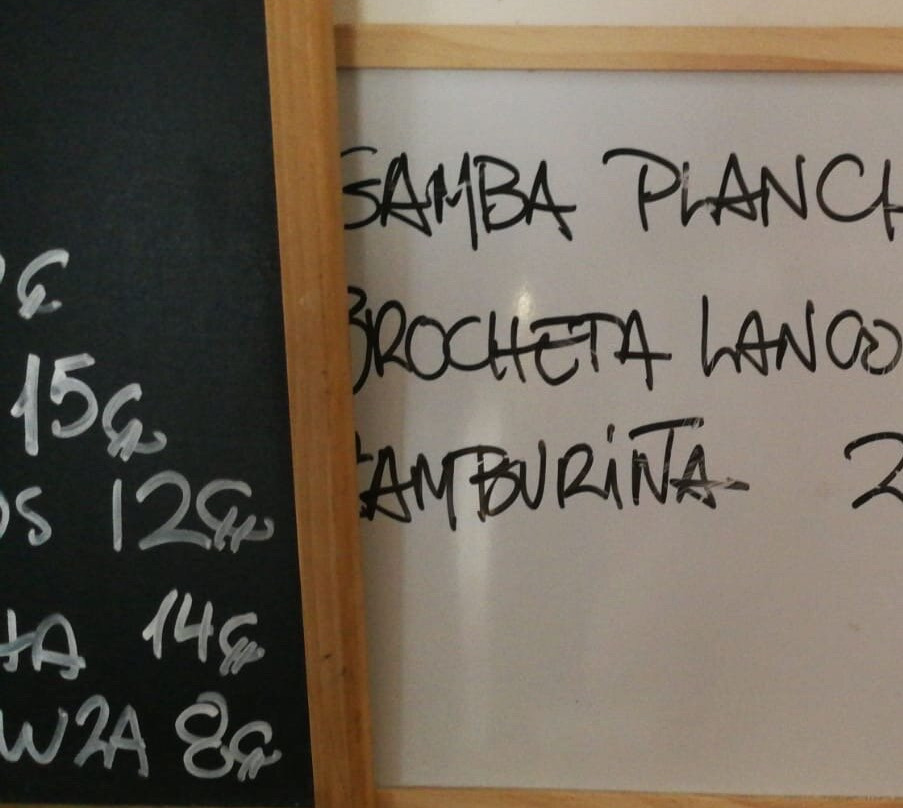 €
15€
12€
14€
8€
GAMBA PLANCH
BROCHETA LANGO
ZAMBURIÑA 2